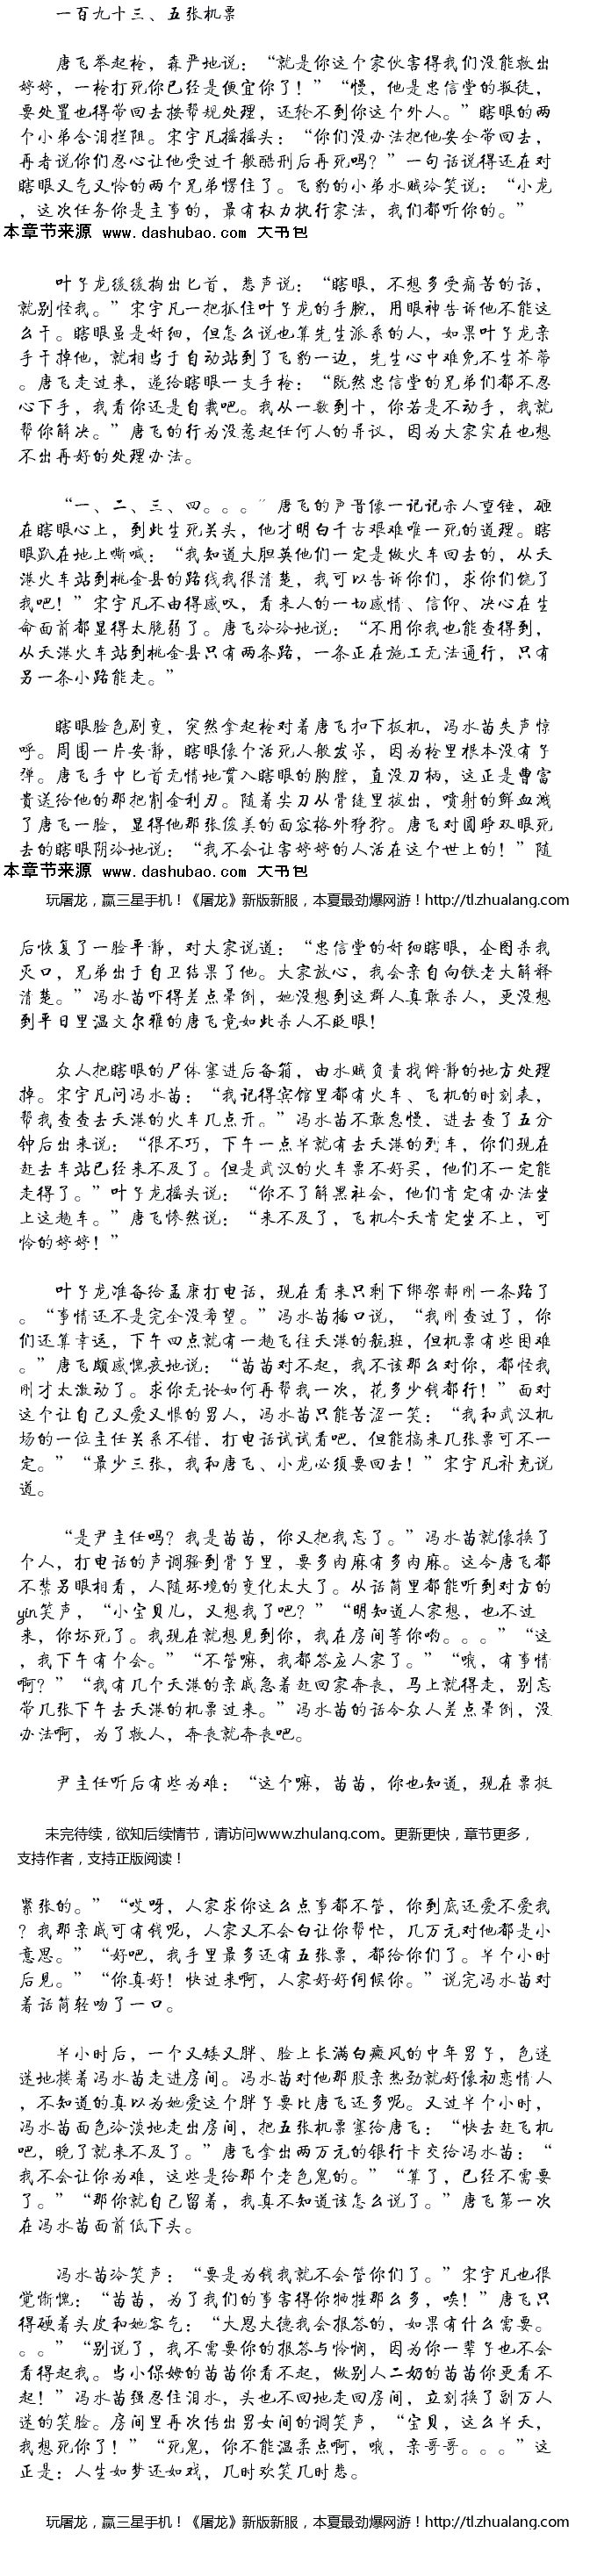 一百九十三、五张机票
唐飞举起枪，森严地说：“就是你这个家伙害得我们没能救出
婷婷，一枪打死你已经是便宜你了！”“慢，他是忠信堂的叛徒，
要处置也得带回去按帮规处理，还轮不到你这个外人。”瞎眼的两
个小弟含泪拦阻。宋宇凡摇摇头：“你们没办法把他安全带回去，
再者说你们忍心让他受过千般酷刑后再死吗？”一句话说得还在对
瞎眼又气又怜的两个兄弟愣住了。飞豹的小弟水贼冷笑说：“小龙
，这次任务你是主事的，最有权力执行家法，我们都听你的。”
本章节来源 www.dashubao.com 大书包
叶子龙缓缓掏出匕首，悲声说：“瞎眼，不想多受痛苦的话，
就别怪我。”宋宇凡一把抓住叶子龙的手腕，用眼神告诉他不能这
么干。瞎眼虽是奸细，但怎么说也算先生派系的人，如果叶子龙亲
手干掉他，就相当于自动站到了飞豹一边，先生心中难免不生芥蒂
。唐飞走过来，递给瞎眼一支手枪：“既然忠信堂的兄弟们都不忍
心下手，我看你还是自裁吧。我从一数到十，你若是不动手，我就
帮你解决。”唐飞的行为没惹起任何人的异议，因为大家实在也想
不出再好的处理办法。
“一、二、三、四。。。”唐飞的声音像一记记杀人重锤，砸
在瞎眼心上，到此生死关头，他才明白千古艰难唯一死的道理。瞎
眼趴在地上嘶喊：“我知道大胆英他们一定是做火车回去的，从天
港火车站到桃金县的路线我很清楚，我可以告诉你们，求你们饶了
我吧！”宋宇凡不由得感叹，看来人的一切感情、信仰、决心在生
命面前都显得太脆弱了。唐飞冷冷地说：“不用你我也能查得到，
从天港火车站到桃金县只有两条路，一条正在施工无法通行，只有
另一条小路能走。”
瞎眼脸色剧变，突然拿起枪对着唐飞扣下扳机，冯水苗失声惊
呼。周围一片安静，瞎眼像个活死人般发呆，因为枪里根本没有子
弹。唐飞手中匕首无情地贯入瞎眼的胸膛，直没刀柄，这正是曹富
贵送给他的那把削金利刃。随着尖刀从骨缝里拔出，喷射的鲜血溅
了唐飞一脸，显得他那张俊美的面容格外狰狞。唐飞对圆睁双眼死
去的瞎眼阴冷地说：“我不会让害婷婷的人活在这个世上的！”随
本章节来源 www.dashubao.com 大书包
玩屠龙，赢三星手机！《屠龙》新版新服，本夏最劲爆网游！http://tl.zhualang.com
后恢复了一脸平静，对大家说道：“忠信堂的奸细瞎眼，企图杀我
灭口，兄弟出于自卫结果了他。大家放心，我会亲自向铁老大解释
清楚。”冯水苗吓得差点晕倒，她没想到这群人真敢杀人，更没想
到平日里温文尔雅的唐飞竟如此杀人不眨眼！
众人把瞎眼的尸体塞进后备箱，由水贼负责找僻静的地方处理
掉。宋宇凡问冯水苗：“我记得宾馆里都有火车、飞机的时刻表，
帮我查查去天港的火车几点开。”冯水苗不敢怠慢，进去查了五分
钟后出来说：“很不巧，下午一点半就有去天港的列车，你们现在
赶去车站已经来不及了。但是武汉的火车票不好买，他们不一定能
走得了。”叶子龙摇头说：“你不了解黑社会，他们肯定有办法坐
上这趟车。”唐飞惨然说：“来不及了，飞机今天肯定坐不上，可
怜的婷婷！”
叶子龙准备给孟康打电话，现在看来只剩下绑架郝刚一条路了
。“事情还不是完全没希望。”冯水苗插口说，“我刚查过了，你
们还算幸运，下午四点就有一趟飞往天港的航班，但机票有些困难
。”唐飞颇感愧疚地说：“苗苗对不起，我不该那么对你，都怪我
刚才太激动了。求你无论如何再帮我一次，花多少钱都行！”面对
这个让自己又爱又恨的男人，冯水苗只能苦涩一笑：“我和武汉机
场的一位主任关系不错，打电话试试看吧，但能搞来几张票可不一
定。”“最少三张，我和唐飞、小龙必须要回去！”宋宇凡补充说
道。
“是尹主任吗？我是苗苗，你又把我忘了。”冯水苗就像换了
个人，打电话的声调骚到骨子里，要多肉麻有多肉麻。这令唐飞都
不禁另眼相看，人随环境的变化太大了。从话筒里都能听到对方的
yin笑声，“小宝贝儿，又想我了吧？”“明知道人家想，也不过
来，你坏死了。我现在就想见到你，我在房间等你哟。。。”“这
，我下午有个会。”“不管嘛，我都答应人家了。”“哦，有事情
啊？”“我有几个天港的亲戚急着赶回家奔丧，马上就得走，别忘
带几张下午去天港的机票过来。”冯水苗的话令众人差点晕倒，没
办法啊，为了救人，奔丧就奔丧吧。
尹主任听后有些为难：“这个嘛，苗苗，你也知道，现在票挺
未完待续，欲知后续情节，请访问www.zhulang.com。更新更快，章节更多，
支持作者，支持正版阅读！
紧张的。”“哎呀，人家求你这么点事都不管，你到底还爱不爱我
？我那亲戚可有钱呢，人家又不会白让你帮忙，几万元对他都是小
意思。”“好吧，我手里最多还有五张票，都给你们了。半个小时
后见。”“你真好！快过来啊，人家好好伺候你。”说完冯水苗对
着话筒轻吻了一口。
半小时后，一个又矮又胖、脸上长满白癜风的中年男子，色迷
迷地搂着冯水苗走进房间。冯水苗对他那股亲热劲就好像初恋情人
，不知道的真以为她爱这个胖子要比唐飞还多呢。又过半个小时，
冯水苗面色冷淡地走出房间，把五张机票塞给唐飞：“快去赶飞机
吧，晚了就来不及了。”唐飞拿出两万元的银行卡交给冯水苗：“
我不会让你为难，这些是给那个老色鬼的。”“算了，已经不需要
了。”“那你就自己留着，我真不知道该怎么说了。”唐飞第一次
在冯水苗面前低下头。
冯水苗冷笑声：“要是为钱我就不会管你们了。”宋宇凡也很
觉惭愧：“苗苗，为了我们的事害得你牺牲那么多，唉！”唐飞只
得硬着头皮和她客气：“大恩大德我会报答的，如果有什么需要。
。。”“别说了，我不需要你的报答与怜悯，因为你一辈子也不会
看得起我。当小保姆的苗苗你看不起，做别人二奶的苗苗你更看不
起！”冯水苗强忍住泪水，头也不回地走回房间，立刻换了副万人
迷的笑脸。房间里再次传出男女间的调笑声，“宝贝，这么半天，
我想死你了！”“死鬼，你不能温柔点啊，哦，亲哥哥。。。”这
正是：人生如梦还如戏，几时欢笑几时悲。
玩屠龙，赢三星手机！《屠龙》新版新服，本夏最劲爆网游！http://tl.zhualang.com